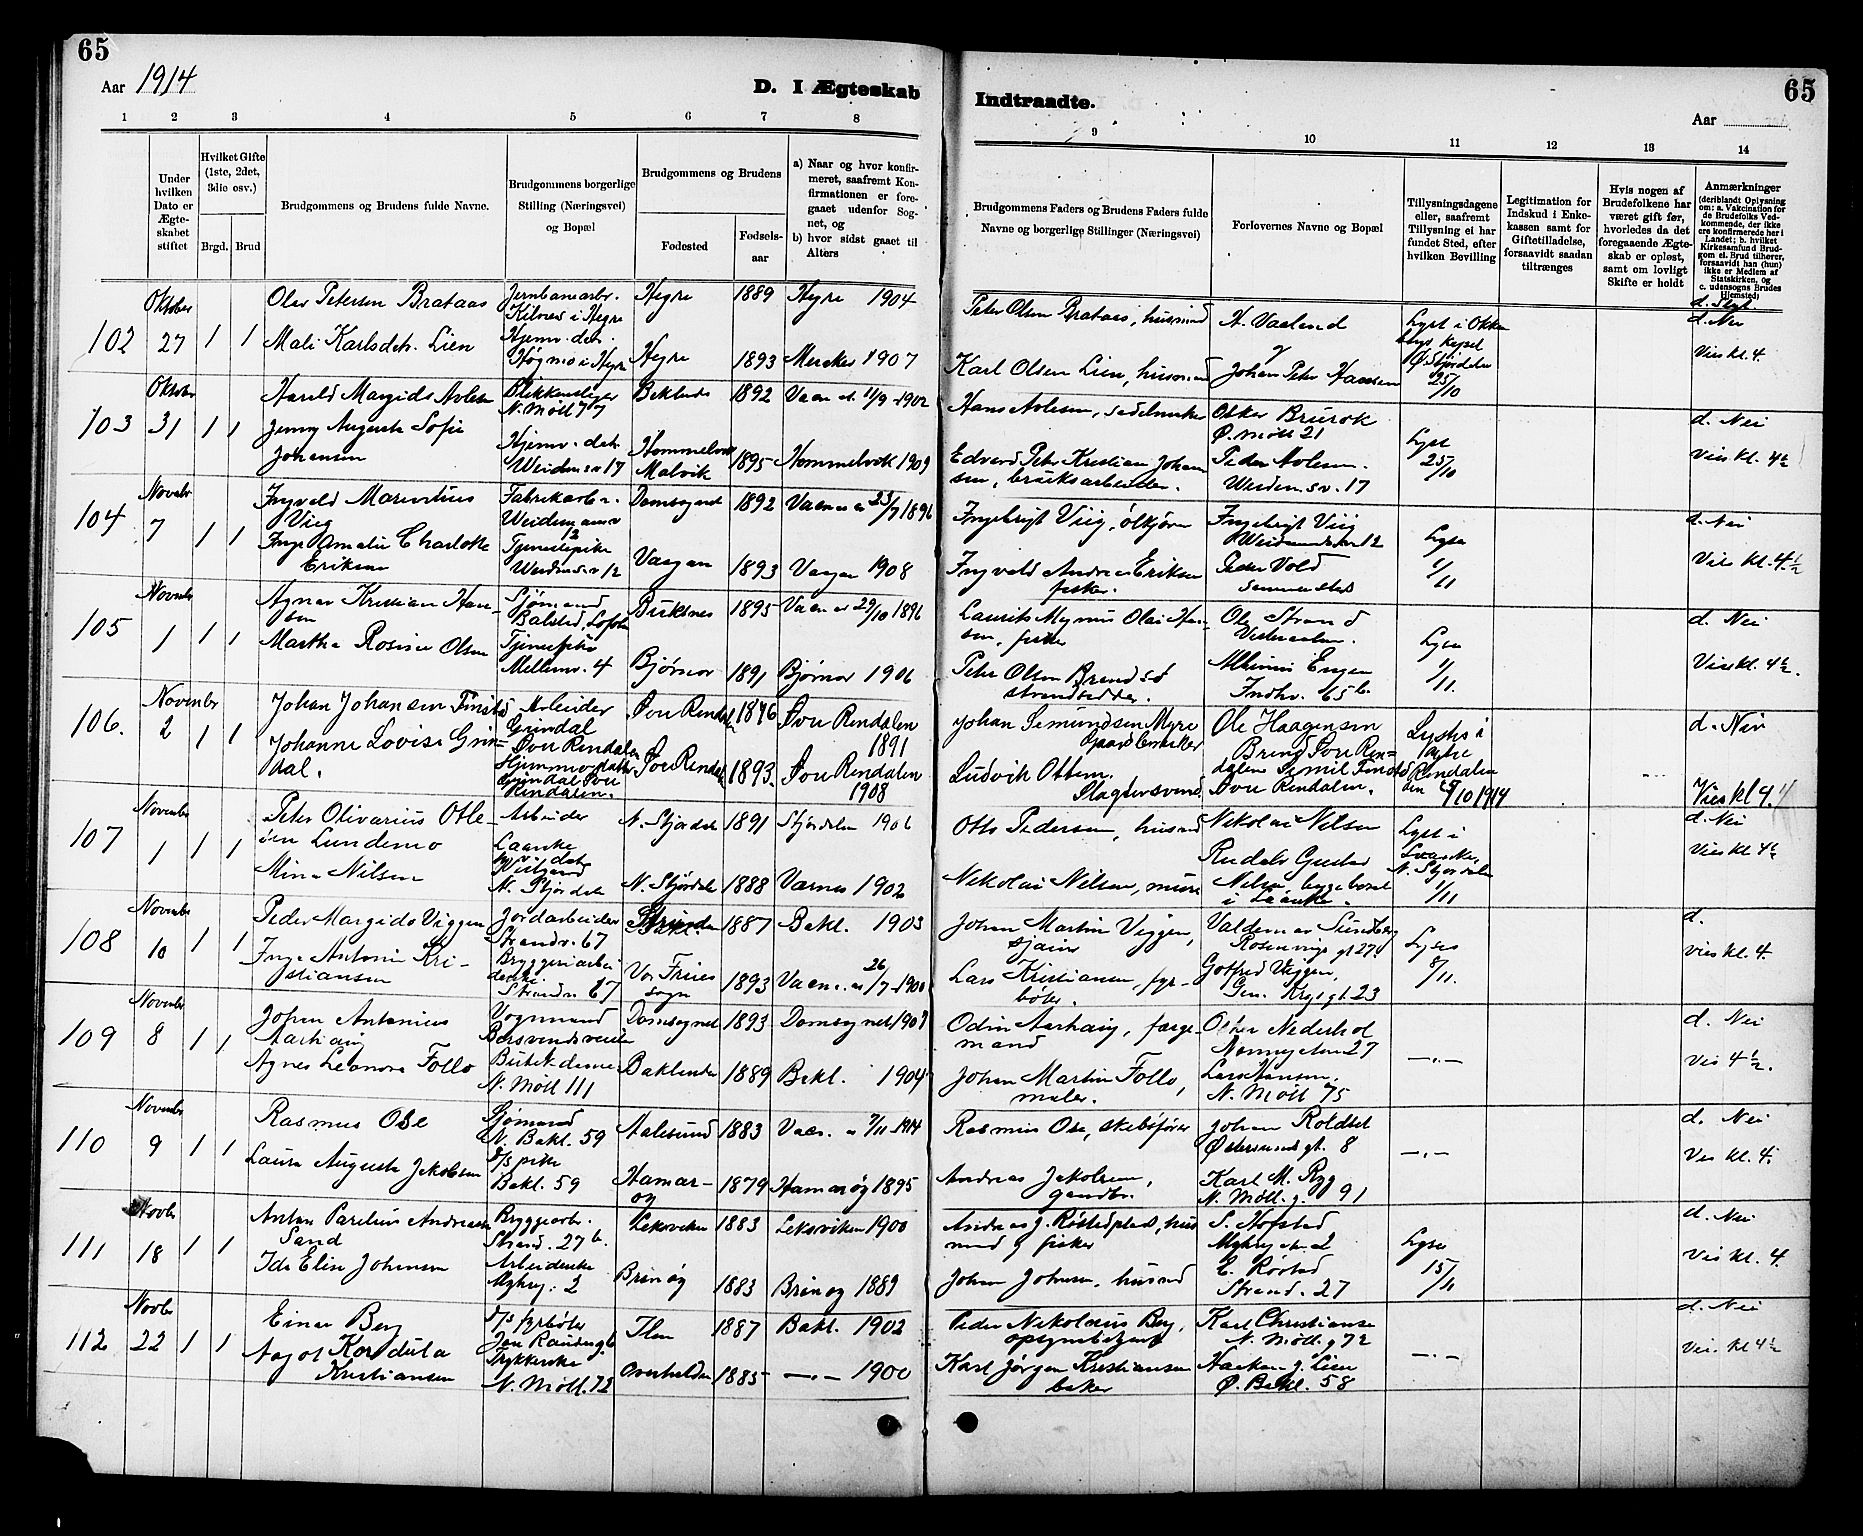 65
Aar 1914
D. I Ægteskab
Indtraadte.
65
Aar
1 2 3 4 5 6 7 8
9 10 11 12 13 14
Under hvilken Dato er Ægteskabet stiftet
Hvilket Gifte (1ste, 2det, 3die osv.)
Brgd. Brud
Brudgommens og Brudens fulde Navne.
Brudgommens borgerlige Stilling (Næringsvei) og Bopæl
Brudgommens og Brudens
Fødested
Fødselsaar
a) Naar og hvor konfirmeret, saafremt Konfirmationen er foregaaet udenfor Sognet, og
b) hvor sidst gaaet til Alters
Brudgommens Faders og Brudens Faders fulde Navne og borgerlige Stillinger (Næringsvei)
Forlovernes Navne og Bopæl
Tillysningsdagene eller, saafremt Tillysning ei har fundet Sted, efter hvilken Bevilling
Legitimation for Indskud i Enkekassen samt for Giftetilladelse, forsaavidt saadan tiltrænges
Hvis nogen af Brudefolkene har været gift før, hvorledes da det foregaaende Ægteskab er opløst, samt om lovligt Skifte er holdt
Anmærkninger (deriblandt Oplysning om: a. Vakcination for de Brudefolks Vedkommende, der ikke ere konfirmerede her i Landet; b. hvilket Kirkesamfund Brudgom el. Brud tilhører, forsaavidt han (hun) ikke er Medlem af Statskirken, og c. udensogns Brudes Hjemsted)
102 Oktober 27 1 1
Olav Petersen Brataas
Hegre 1889 Hegre 1904
Peter Olsen Brataas, husmand
H. Vaalend
d. Nei
Mali Karlsdtr. Lien
Hjemv. dtr.
Høgmo i Hegre
Hegre 1893 Meraker 1907
Karl Olsen Lien, husmand
Johan Peter Hansen
25/10
Vies kl. 4.
103 Oktober 31 1 1
Harald Margido Aolesen
N. Møll 77
Baklands 1892 11/9 1902
Hans Aolesen, sadelmaker
Oskar Brurok
Ø. Møll 21
Lyst
25/10
d. Nei
Jenny Augusta Sofie
Johansen
Hjemv. datr
17
Hommelvik
Malvik
1895 Hommelvik 1909
Edvard Peter Kristian Johansen, bruksarbeider.
Peder Aolesen.
17
Vies kl. 4½
104 Novbr 7 1 1
Viig
Fabrikarb.
12
Domsognet 1892 23/7 1896
Ingebrigt Viig, ølkjører
Ingebrigt Viig
12
Lyst
1/11
d. Nei
Inga Amalie Charlotte
Eriksen
Tjenestepike
12
Vaagan 1893 Vaagan 1908
Ingvald Andreas Eriksen
fisker.
Peder Vold
Vies kl. 4½
105 Novbr 1 1 1
Agnar Kristian Hansen
Sjømand
Buksnes 1895 29/10 1896
Laurits Magnus Olai Hansen, fisker
Ole Strand
Lyst
1/11.
d. Nei
Martha Rosine Olsen
Tjenestpike
Mellemv. 4
Bjørnør 1891 Bjørnør 1906
Peter Olsen Brendsø
strandsidder.
Engen
Indhv. 65 b.
Vies kl. 4½.
106. November 2 1 1
Johan Johansen Finstad
Arbeider
Grindal
Øvre Rendalen
Øvre Rendalen 1876 Øvre Rendalen
1891
Johan Semundsen Myre
Gaardbruker
Ole Haagensen
Bring Øvre Rendalen
Lystes i
Rendalen
1914
d. Nei
Johanne Lovise Grindal.
Grindal Øvre
Rendalen.
Øvre Rendal 1893. Øvre Rendalen
1908
Ludvik Ottem.
Slagtersvend.
Emil Finstad
Øvre Rendalen.
Vies kl 4.
107 November 1 1 1
Peter Olivarius Otteien Lundemo
Arbeider
Laanke
N. Stjørdal 1891 Stjørdalen 1906
Otto Pedersen, husmd
Nikolai Nilsen
Lyst i
Laanke,
N. Stjørdalen
1/11
d. Nei
Mina Nilsen
N. Stjørdal
N. Stjørdal 1888 Værnes 1902
Nikolai Nilsen, murer
i Laanke.
Vies kl 4½
108 Novembr 10 1 1
Peder Margido Viggen
Jordarbeider
Strandv. 67
1887 Bakl. 1903
Johan Martin Viggen,
Valdemar Sundberg
Rosenvinge gt 27
Lyst
8/11.
d.
Inga Antonie Kristiansen
Bryggeriarbeiderske
Strandv. 67
Vor Frues
sogn
1893 26/7 1900
Lars Kristiansen, fyrbøter.
Gotfred Viggen,
Gen. Krogs gt 23
vies kl. 4.
109 Novembr 8 1 1
Johan Antonius
Vognmand
Domsognet 1893 Domsognet 1907
Odin Aarhaug, færgemand
Nederhol
27
—.—
d. Nei
Agnes Leonora Follo
N. Møll 111
Baklandet 1889 Bakl. 1904
Johan Martin Follo,
maler.
Lars Hansen.
N. Møll 75
Vies 4½.
110 Novembr 9 1 1
Rasmus Ose
Sjømand
N. Bakl. 59
Aalesund 1883 7/11 1914
Rasmus Ose, skibsfører
Johan Roldset
Østersunds gt. 8
—.—
d. Nei
Laura Augusta Jakobsen
pike
Bakl. 59
Hamarøy 1879 Hamarøy 1895
Andreas Jakobsen,
gaardbr.
Karl M. Ryg
N. Møll. g. 91
Vies kl. 4.
111 Novbr 18 1 1
Anton Parelius Andreasen
Sand
Bryggearb.
Strand. 27 b.
Leksviken 1883 Leksviken 1900
Andreas J. Røstadplads, husmand og fisker
S. Hofstad
2
Lyst
15/11
d. Nei
Ida Elise Johansen
Arbeiderske
2
Brinøy 1883 Brinøy 1889
Johan Johnsen, husmd
E. Røstad
Strand. 27
Vies kl. 4.
112 Novbr 22 1 1
Einar Berg
d/s fyrbøter
Ilen 1887 Bakl. 1902
Peder Nikolaus Berg,
opsynsbetjent
Karl Christiansen
N. Møll. g 72
—.—
d. Nei
Aagot Kordula
Kristiansen
Trykkerske
N. Møll. 72
Overhalden 1885 —.— 1900
Karl Jørgen Kristiansen
baker
Haakon J. Lien
Ø. Bakl. 58
Vies. kl 4½